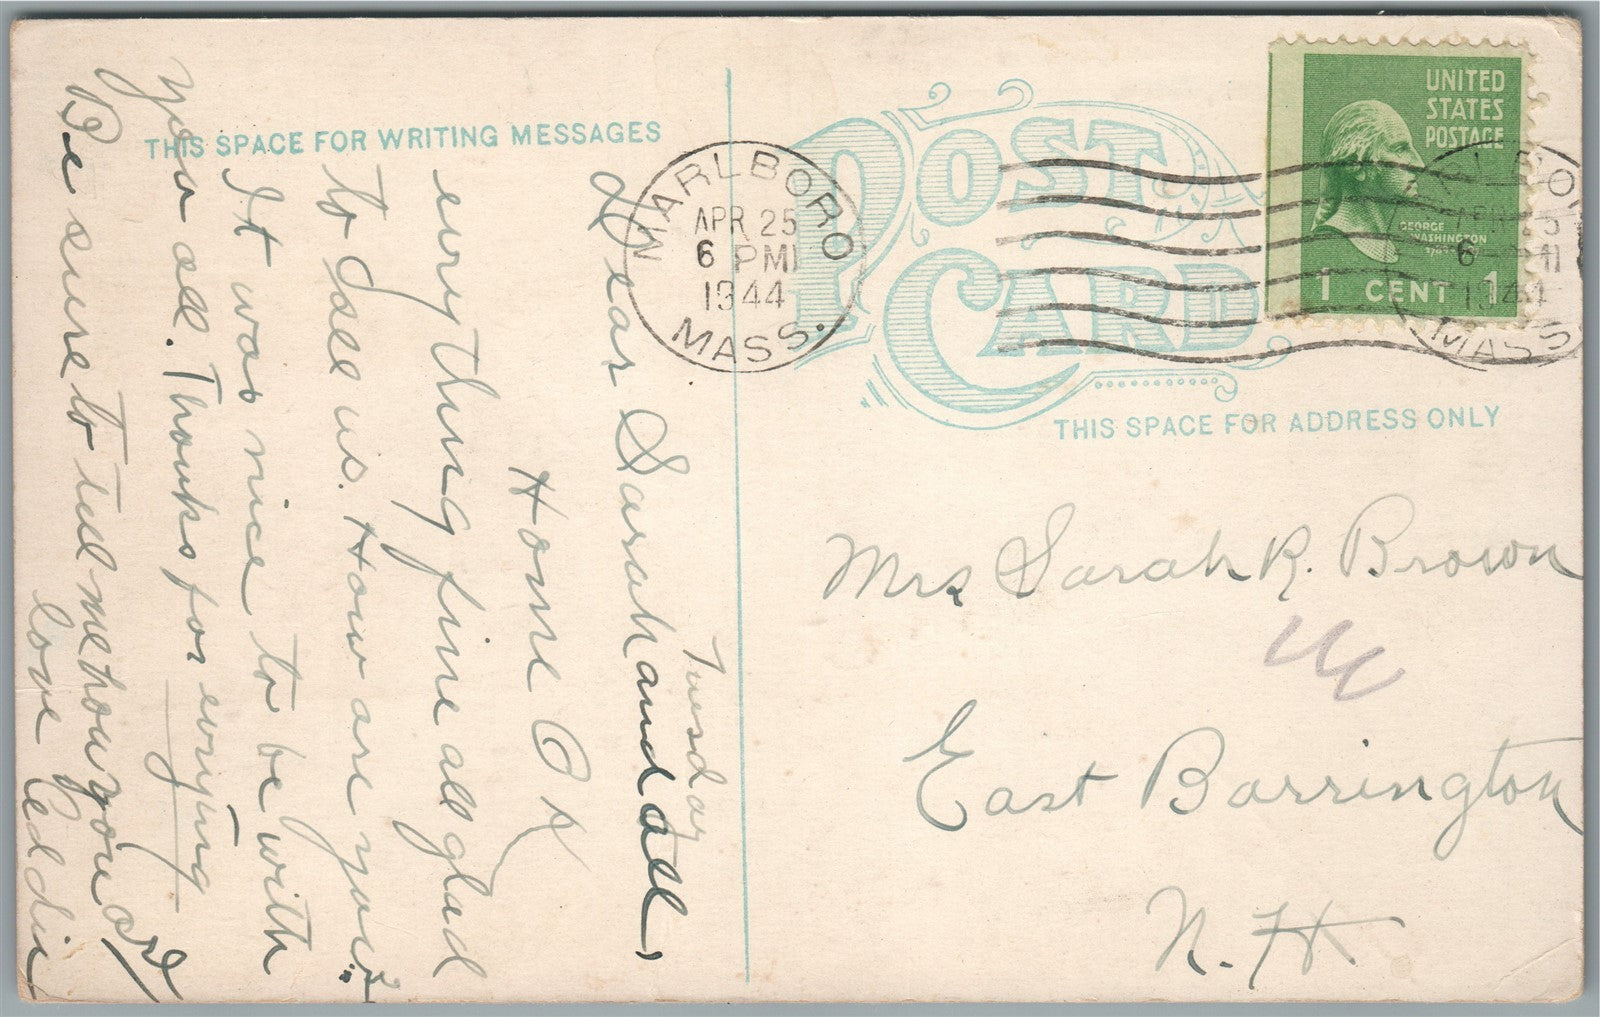 THIS SPACE FOR WRITING MESSAGES
Tuesday
Dear Sarah and all,
Home O K
everything fine all glad
to See us. How are you?
It was nice to be with
you all. Thanks for evrying
Be sure to tell me how you are
love Eddie
POST CARD
THIS SPACE FOR ADDRESS ONLY
MARLBORO
APR 25
6 PM
1944
MASS.
UNITED
STATES
POSTAGE
GEORGE
WASHINGTON
1 CENT 1
Mrs Sarah R. Brown
East Barrington
N. H